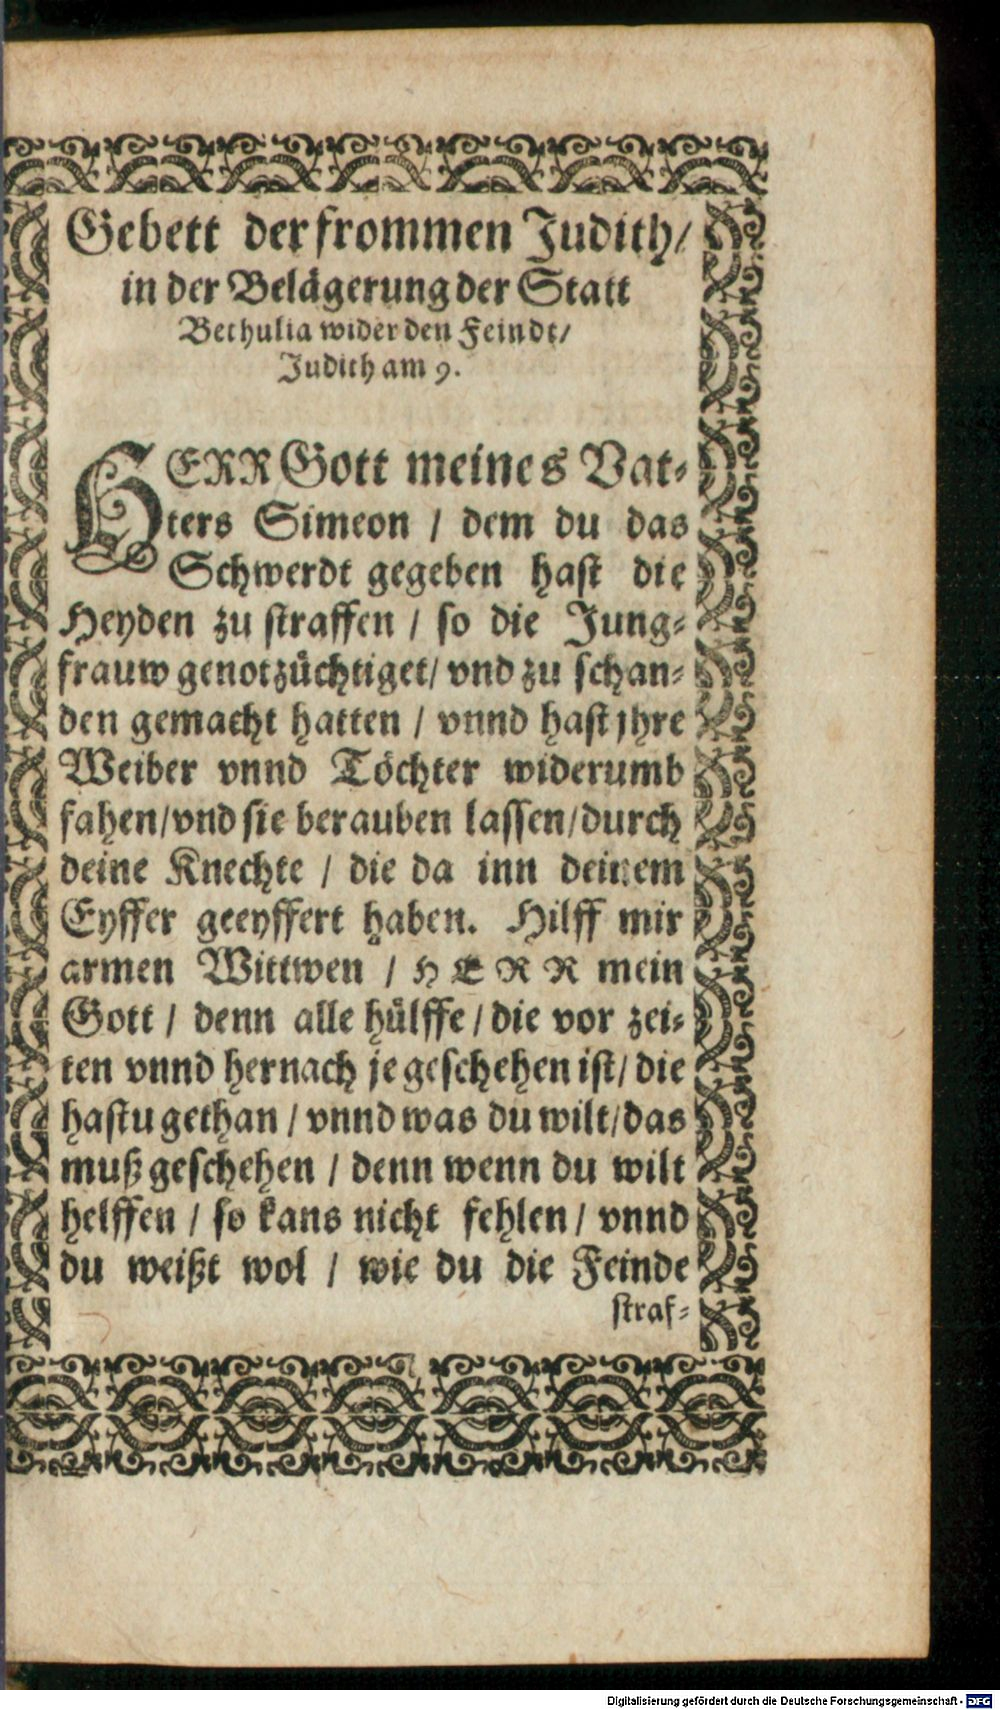 Gebett der frommen Judith/
in der Belägerung der Statt
Bethulia wider den Feindt/
Judith am 9.
HERR Gott meines Vat-
ters Simeon / dem du das
Schwerdt gegeben hast die
Heyden zu straffen / so die Jung-
frauw genotzüchtiget/ vnd zu schan-
den gemacht hatten / vnnd hast jhre
Weiber vnnd Töchter widerumb
fahen/vnd sie berauben lassen/durch
deine Knechte / die da inn deinem
Eyffer geeyffert haben. Hilff mir
armen Wittwen / HERR mein
Gott / denn alle hülffe / die vor zei-
ten vnnd hernach je geschehen ist/ die
hastu gethan / vnnd was du wilt/das
muß geschehen / denn wenn du wilt
helffen / so kans nicht fehlen / vnnd
du weißt wol / wie du die Feinde
straf-
Digitalisierung gefördert durch die Deutsche Forschungsgemeinschaft - DFG